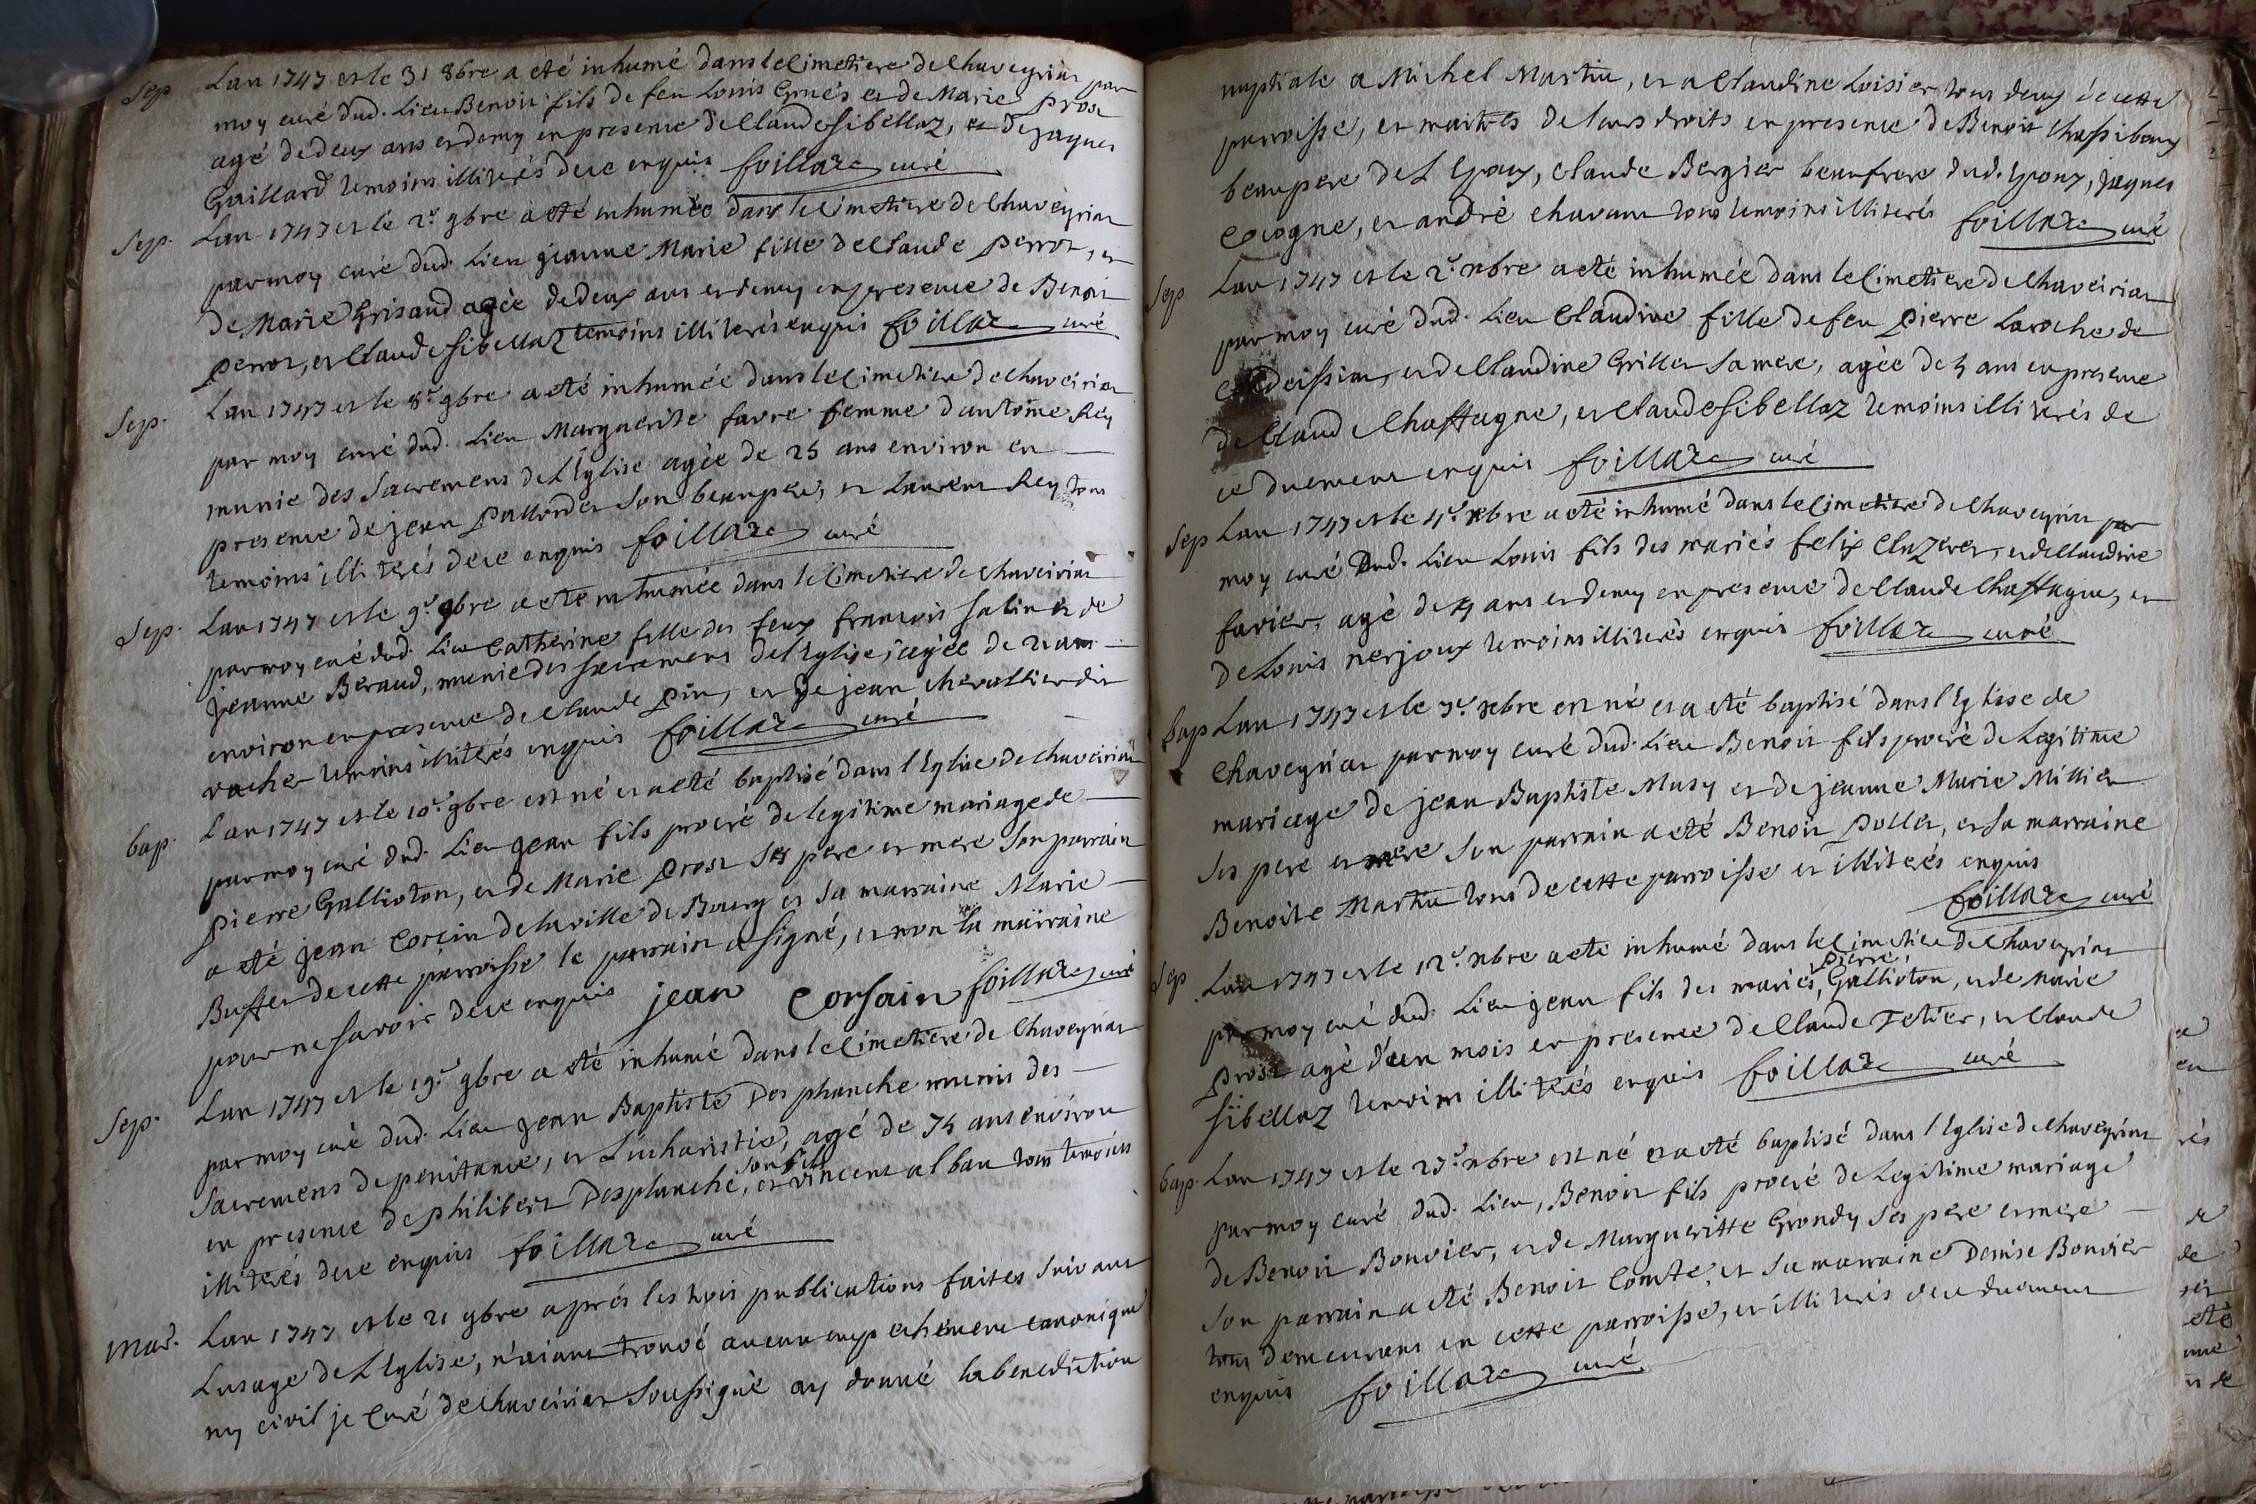 Sep. Lan 1747 et le 31 8bre a eté inhumé dans le Cimetiere de Chaveyriat par
moy curé dud. Lieu Benoit fils de feu Louis et de Marie Prost
agé de deux ans et demy en presence de Claude Sibellaz, et de Jaques
Gaillard temoins illiterés de ce enquis foillaz curé
Sep. Lan 1747 et le 2e 9bre a eté inhumée dans le Cimetiere de Chaveyriat
par moy curé dud. Lieu jeanne Marie fille de Claude Perrot, et
de Marie Grisaud agée de deux ans et demy en presence de Benoit
Perrot, et Claude Sibellaz temoins illiterés enquis foillaz curé
Sep. Lan 1747 et le 8e 9bre a eté inhumée dans le Cimetiere de chaveiriat
par moy curé dud. Lieu Marguerite favre femme dantoine Rey
munie des Sacremens de L'Eglise agée de 25 ans environ en
presence de jean son beaupere, et Laurent Rey tous
temoins illiterés de ce enquis foillaz curé
Sep. Lan 1747 et le 9e 9bre a eté inhumée dans le Cimetiere de chaveiriat
par moy curé dud. Lieu Catherine fille des feux francois Salin et de
jeanne Beraud, munie des sacremens de l'Eglise, agée de ans
environ en presence de Claude Pin, et de jean chevallier dit
vacher temoins illiterés enquis foillaz curé
bap. Lan 1747 et le 10e 9bre est né et a eté baptisé dans l'Eglise de chaveiriat
par moy curé dud. Lieu jean fils procreé de legitime mariage de
pierre Gallioton, et de Marie Prost ses pere et mere Son parrain
a eté jean Corcin de la ville de Bourg et sa marraine Marie
Buffet de cette parroisse le parrain a signé, et non la marraine
pour ne savoir de ce enquis jean Corsain foillaz curé
Sep. Lan 1747 et le 19e 9bre a eté inhumé dans le Cimetiere de Chaveyriat
par moy curé dud. Lieu jean Baptiste Desphanche munis des
sacremens de penitance, et Eucharistie, agé de 75 ans environ
en presence de philibert Desplanche, son fils et vincent alban tous temoins
illiterés de ce enquis foillaz curé
Mar. Lan 1747 et le 21 9bre aprés les trois publications faites suivant
Lusage de L'Eglise, n'aiant trouvé aucun empechement canonique
ny civil je Curé de chaveiriat soussigné ay donné la benediction
nuptiale a Michel Martin, et a Claudine Loisier tous deux de cette
parroisse, et maitres de leurs droits en presence de Benoit Chassiboux
beaupere de L'Epoux, Claude Bergier beaufrere dud. Epoux, jaques
Cocogne, et andré chavant tous temoins illiterés foillaz curé
Sep Lan 1747 et le 2e xbre a eté inhumée dans le Cimetiere de Chaveiriat
par moy curé dud. Lieu Claudine fille de feu Pierre Laroche de
Condeissiat, et de Claudine Grillet sa mere, agée de 5 ans en presence
de Claud Chaffagne, et Claude Sibellaz temoins illiterés de
ce duement enquis foillaz curé
Sep Lan 1747 et le 4e xbre a eté inhumé dans le Cimetiere de Chaveyriat par
moy curé Dud. Lieu Louis fils des mariés felix Cluzeret, et de Claudine
favier, agé de 4 ans et demy en presence de Claude Chaffagne, et
de Louis nerjoux temoins illiterés enquis foillaz curé
Bap Lan 1747 et le 7e xbre est né et a eté baptisé dans l'Eglise de
Chaveyriat par moy curé dud. Lieu Benoit fils procreé de Legitime
mariage de jean Baptiste Musy et de jeanne Marie Millier
ses pere et mere son parrain a eté Benoit Pollet, et sa marraine
Benoite Martin tous de cette parroisse et illiterés enquis
foillaz curé
Sep Lan 1747 et le 12e xbre a eté inhumé dans le Cimetiere de Chaveyriat
par moy curé dud. Lieu jean fils des mariés, pierre Gallioton, et de Marie
Prost agé d'un mois en presence de Claude Tetier, et Claude
Sibellaz temoins illiterés enquis foillaz curé
bap. Lan 1747 et le 27e xbre est né et a eté baptisé dans l'Eglise de Chaveyriat
par moy curé dud. Lieu, Benoit fils procreé de Legitime mariage
de Benoit Bonvier, et de Margueritte Grondy ses pere et mere
Son parrain a eté Benoit Comte, et sa marraine Denise Bonvier
tous demeurans en cette parroisse, et illiterés de ce duement
enquis foillaz curé